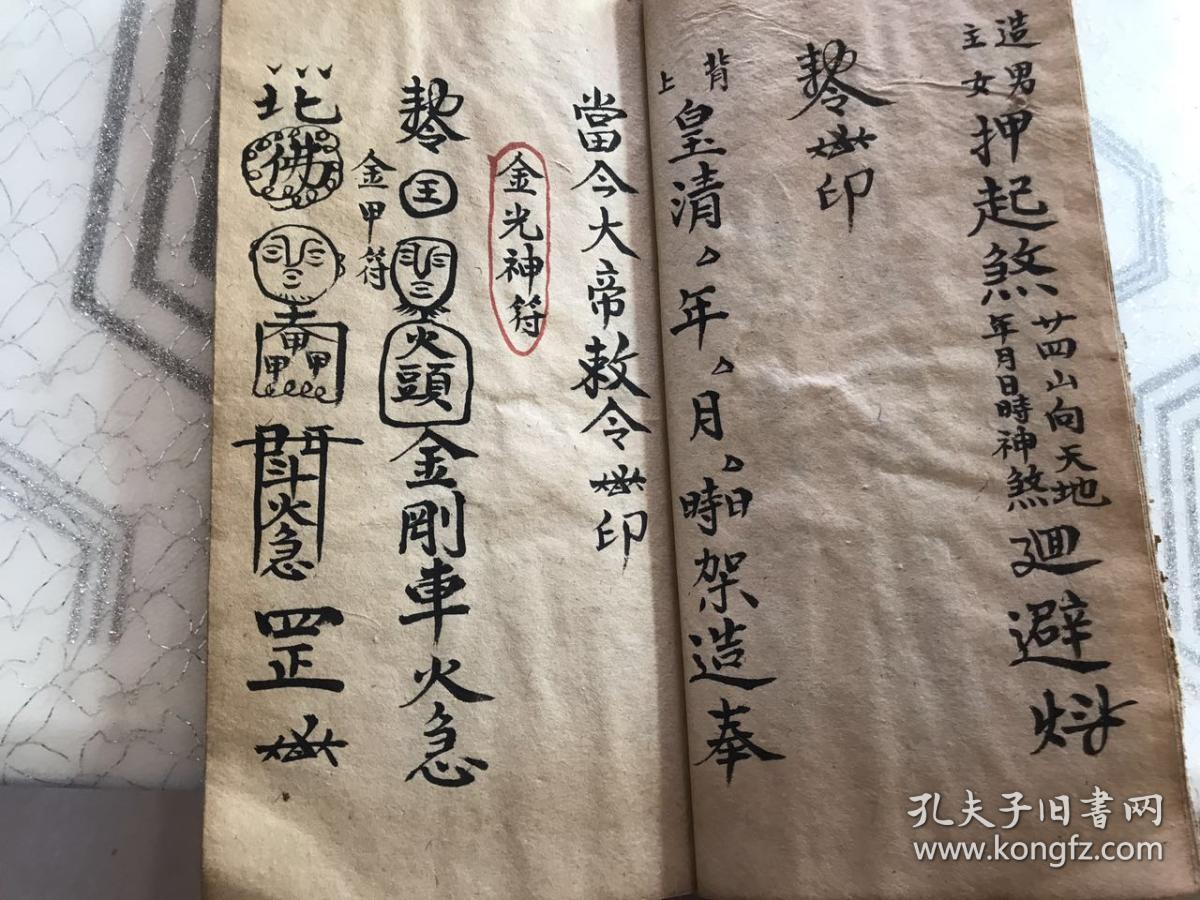 造主男女押起煞廿四山向天地年月日時神煞廻避
印
背上
皇清年月日時架造奉
當今大帝敕令印
金光神符
王火頭金剛車火急
金甲符
佛甲甲斗火急罡
孔夫子旧书网
www.kongfz.com